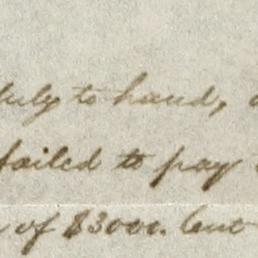 duly to hand,
failed to pay
of $3000. but